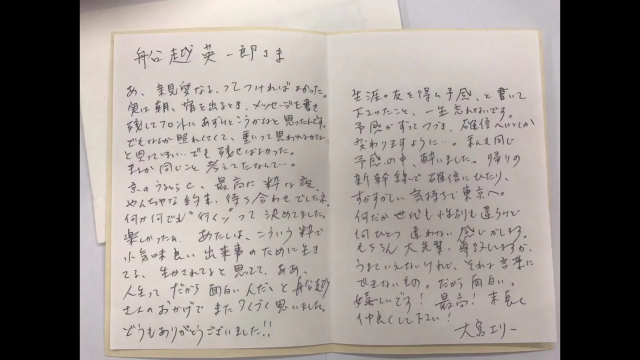 船越英一郎さま
あ、親愛なる、ってつければよかった。
実は朝、宿を出るとき、メッセージを書き
残してフロントにあずけとこうかなと思ったんです。
でもなんか照れくさくて、重いって思われるかな
と思ってしまい…でも残せばよかった。
まさか同じこと考えてたなんて…。
京のうちらと、最高に粋な夜、
やんちゃな約束、待ち合わせでした。
何が何でも"行く"って決めてました。
楽しかったぁ あたしは、こういう粋で
小気味良い出来事のために生き
てる、生かされてると思ってて、ああ、
人生ってだから面白いんだと船越
さんのおかげでまたつくづく思いました。
どうもありがとうございました!!
生涯の友を得た予感、と書いて
下さったこと、一生忘れないです。
予感がずっとつづき、確信へいつか
変わりますように…。私も同じ
予感の中、酔いました。帰りの
新幹線で確信にひたり、
すがすがしい気持ちで東京へ。
何だか世代も性別も違うけど
何ひとつ違わない感じがします。
もちろん大先輩、尊敬しますが、
うまくいえないけれど、それは言葉に
できないもの。だから面白い。
嬉しいです!最高!末長く
仲良くして下さい!
大宮エリー